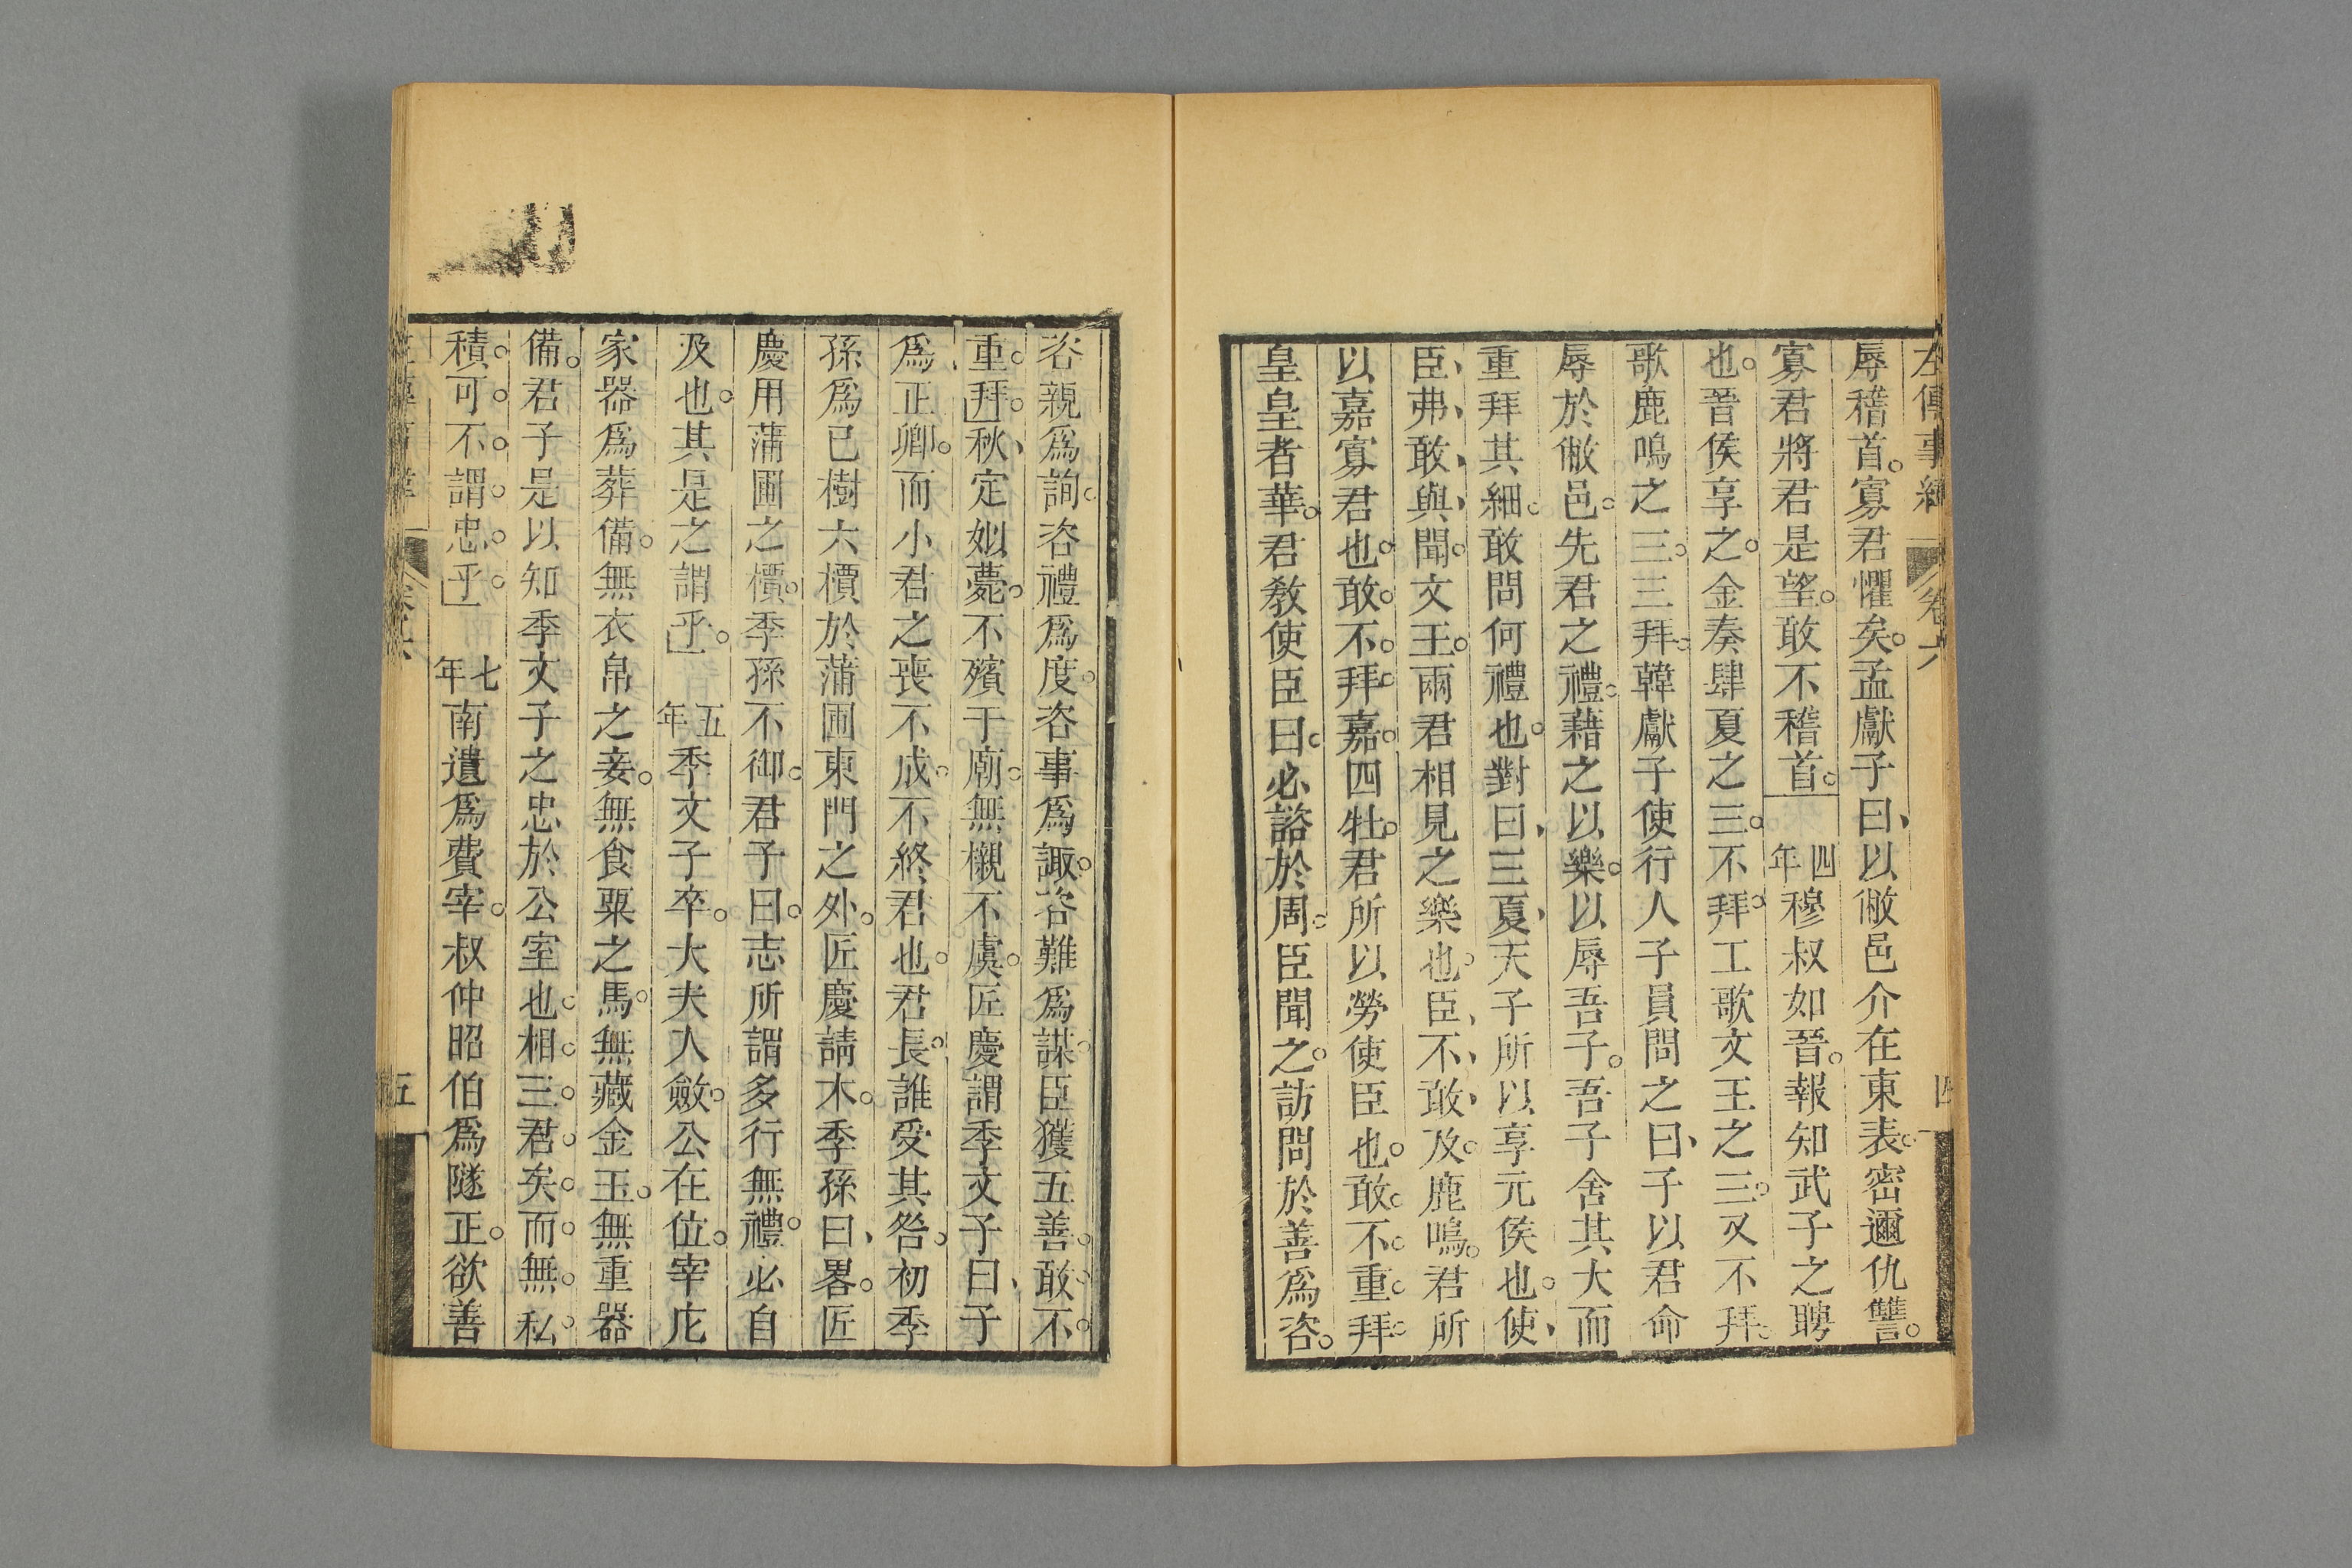 左傳事緯 卷六 四
辱稽首。寡君懼矣。孟獻子曰、以敝邑介在東表。密邇仇讐。
寡君將君是望。敢不稽首。 四年 穆叔如晉。報知武子之聘
也。晉侯享之。金奏肆夏之三。不拜。工歌文王之三。又不拜。
歌鹿鳴之三。三拜。韓獻子使行人子員問之曰、子以君命
辱於敝邑。先君之禮。藉之以樂。以辱吾子。吾子舍其大而
重拜其細。敢問何禮也。對曰、三夏、天子所以享元侯也。使、
臣、弗、敢、與、聞。文王。兩君相見之樂也。臣、不、敢、及。鹿鳴。君所
以嘉寡君也。敢。不。拜。嘉。四牡。君所以勞使臣也。敢。不。重。拜。
皇皇者華。君教使臣曰。必諮於周。臣聞之。訪問於善爲咨。
咨親爲詢。咨禮爲度。咨事爲諏。咨難爲謀。臣獲五善。敢。不。
重。拜。秋、定姒薨。不殯于廟。無櫬。不虞。匠慶謂季文子曰、子
爲正卿。而小君之喪不成。不終君也。君長。誰受其咎。初季
孫爲已樹六檟於蒲圃東門之外。匠慶請木。季孫曰、畧。匠
慶用蒲圃之檟。季孫不御。君子曰。志所謂多行無禮。必自
及也。其是之謂乎。 五年 季文子卒。大夫入斂。公在位。宰庀
家器爲葬備。無衣帛之妾。無食粟之馬。無藏金玉。無重器
備。君子是以知季文子之忠於公室也。相。三。君。矣。而。無。私。
積。可。不。謂。忠。乎。 七年 南遺爲費宰。叔仲昭伯爲隧正。欲善
五